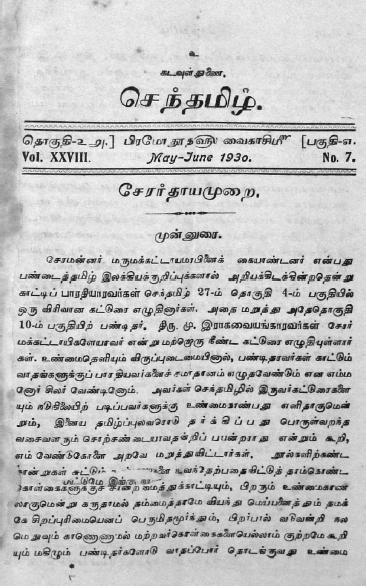 உ
கடவுள் துணை.
செந்தமிழ்.
தொகுதி-உஅ.] பிரமோதூதஹ வைகாசிமீ [பகுதி-எ.
Vol. XXVIII. May-June 1930. No. 7.
சேரர்தாயமுறை.
முன்னுரை.
சேரமன்னர் மருமக்கட்டாயமரபினைக் கையாண்டனர் என்பது
பண்டைத்தமிழ் இலக்கியக்குறிப்புக்களால் அறியக்கிடக்கின்றதென்று
காட்டிப் பாரதியாரவர்கள் செந்தமிழ் 27-ம் தொகுதி 4-ம் பகுதியில்
ஒரு விரிவான கட்டுரை எழுதினார்கள். அதை மறுத்து அதேதொகுதி
10-ம் பகுதியிற் பண்டிதர். திரு. மு. இராகவையங்காரவர்கள் சேரர்
மக்கட்டாயிகளேயாவர் என்று மற்றொரு நீண்ட கட்டுரை எழுதியுள்ளார்
கள். உண்மைதெளியும் விருப்புடைமையினால், பண்டிதரவர்கள் காட்டும்
வாதங்களுக்குப் பாரதியவர்களைச் சமாதானம் எழுதவேண்டும் என எம்ம
னோர் சிலர் வேண்டினோம். அவர்கள் செந்தமிழில் இருவர்கட்டுரைகளை
யும் நடுநிலையிற் படிப்பவர்களுக்கு உண்மைகாண்பது எளிதாகுமென்
றும், இனைய தமிழ்ப்புலவரொடு தர்க்கிப்பது பொருள்வறந்த
வசைவளரும் சொற்சண்டையாவதன்றிப் பயன்றராது என்றும் கூறி,
எம் வேண்டுகோளை அறவே மறுத்துவிட்டார்கள். நூல்களிற்கண்ட
சான்றுகள் சுட்டும் உவந்தேற்பதைவிட்டுத் தாம்கொண்ட
கொள்கைகளுக்குச் சான்றமைத்துக்காட்டியும், பிறரும் உண்மைகாண
லாகுமென்று கருதாமல் தம்மைத்தாமே வியந்து மெய்ப்பனைத்தும் தமக்
கே சிறப்புரிமையெனப் பெருமிதமூர்ந்தும், பிறர்பால் நல
மெதுவும் காணொணாமல் மற்றவர்கொள்கைகளையெல்லாம் குற்றமே கூறி
யும் மகிழும் பண்டிதர்களோடு வாதப்போர் தொடங்குவது உண்மை